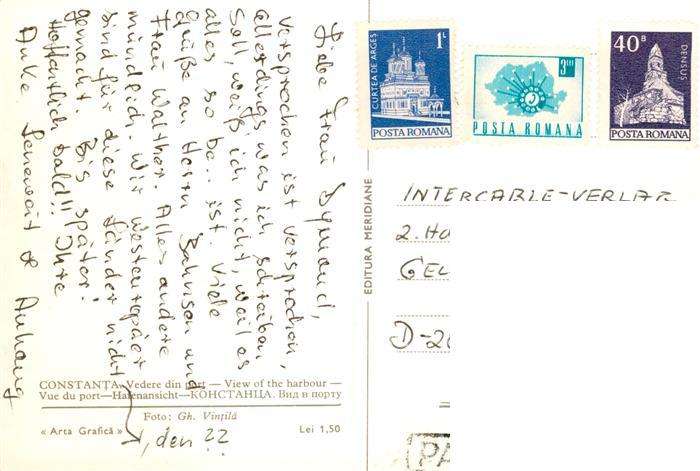 Liebe Frau
versprochen ist versprochen,
allerdings was ich schreiben
soll, weiß ich nicht, weil es
alles so be.. ist. Viele
Grüße an Herrn Bahnson und
Frau Walther. Alles andere
mündlich. Wir westeuropäer
sind für diese Länder nicht
gemacht. Bis später!
Hoffentlich bald!! Ihre
Anke & Anhang
, den 22.
CONSTANŢA. Vedere din port — View of the harbour —
Vue du port—Hafenansicht—КОНСТАНЦА. Вид в порту
Foto: Gh. Vinţilă
« Arta Grafică »
Lei 1,50
EDITURA MERIDIANE
CURTEA DE ARGEŞ
1L
POSTA ROMANA
3
POSTA ROMANA
40B
DENSUŞ
POSTA ROMANA
INTERCABLE-VERLAG
2. Ho
GEL
D-20
PA